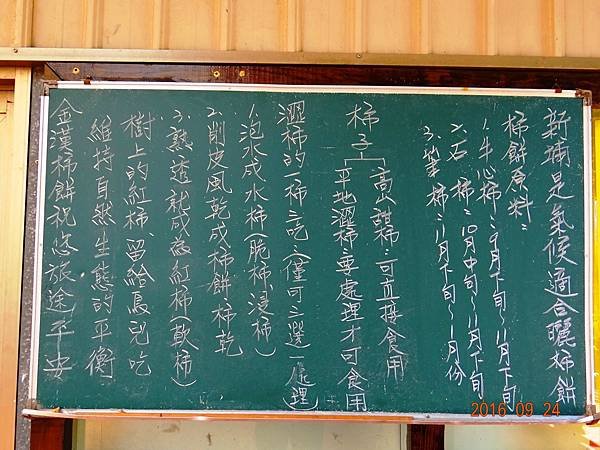 新埔是氣候適合曬柿餅
柿餅原料:
1.牛心柿:9月下旬~11月下旬
2.石柿:10月中旬~11月下旬
3.筆柿:11月下旬~1月份
柿子
高山甜柿:可直接食用
平地澀柿:要處理才可食用
澀柿的一柿三吃(僅可三選一處理)
1.泡水成水柿(脆柿.浸柿)
2.削皮風乾成柿餅.柿乾
3.熟透就成為紅柿(軟柿)
樹上的紅柿、留給鳥兒吃
維持自然生態的平衡
金漢柿餅祝您旅途平安
2016 09 24